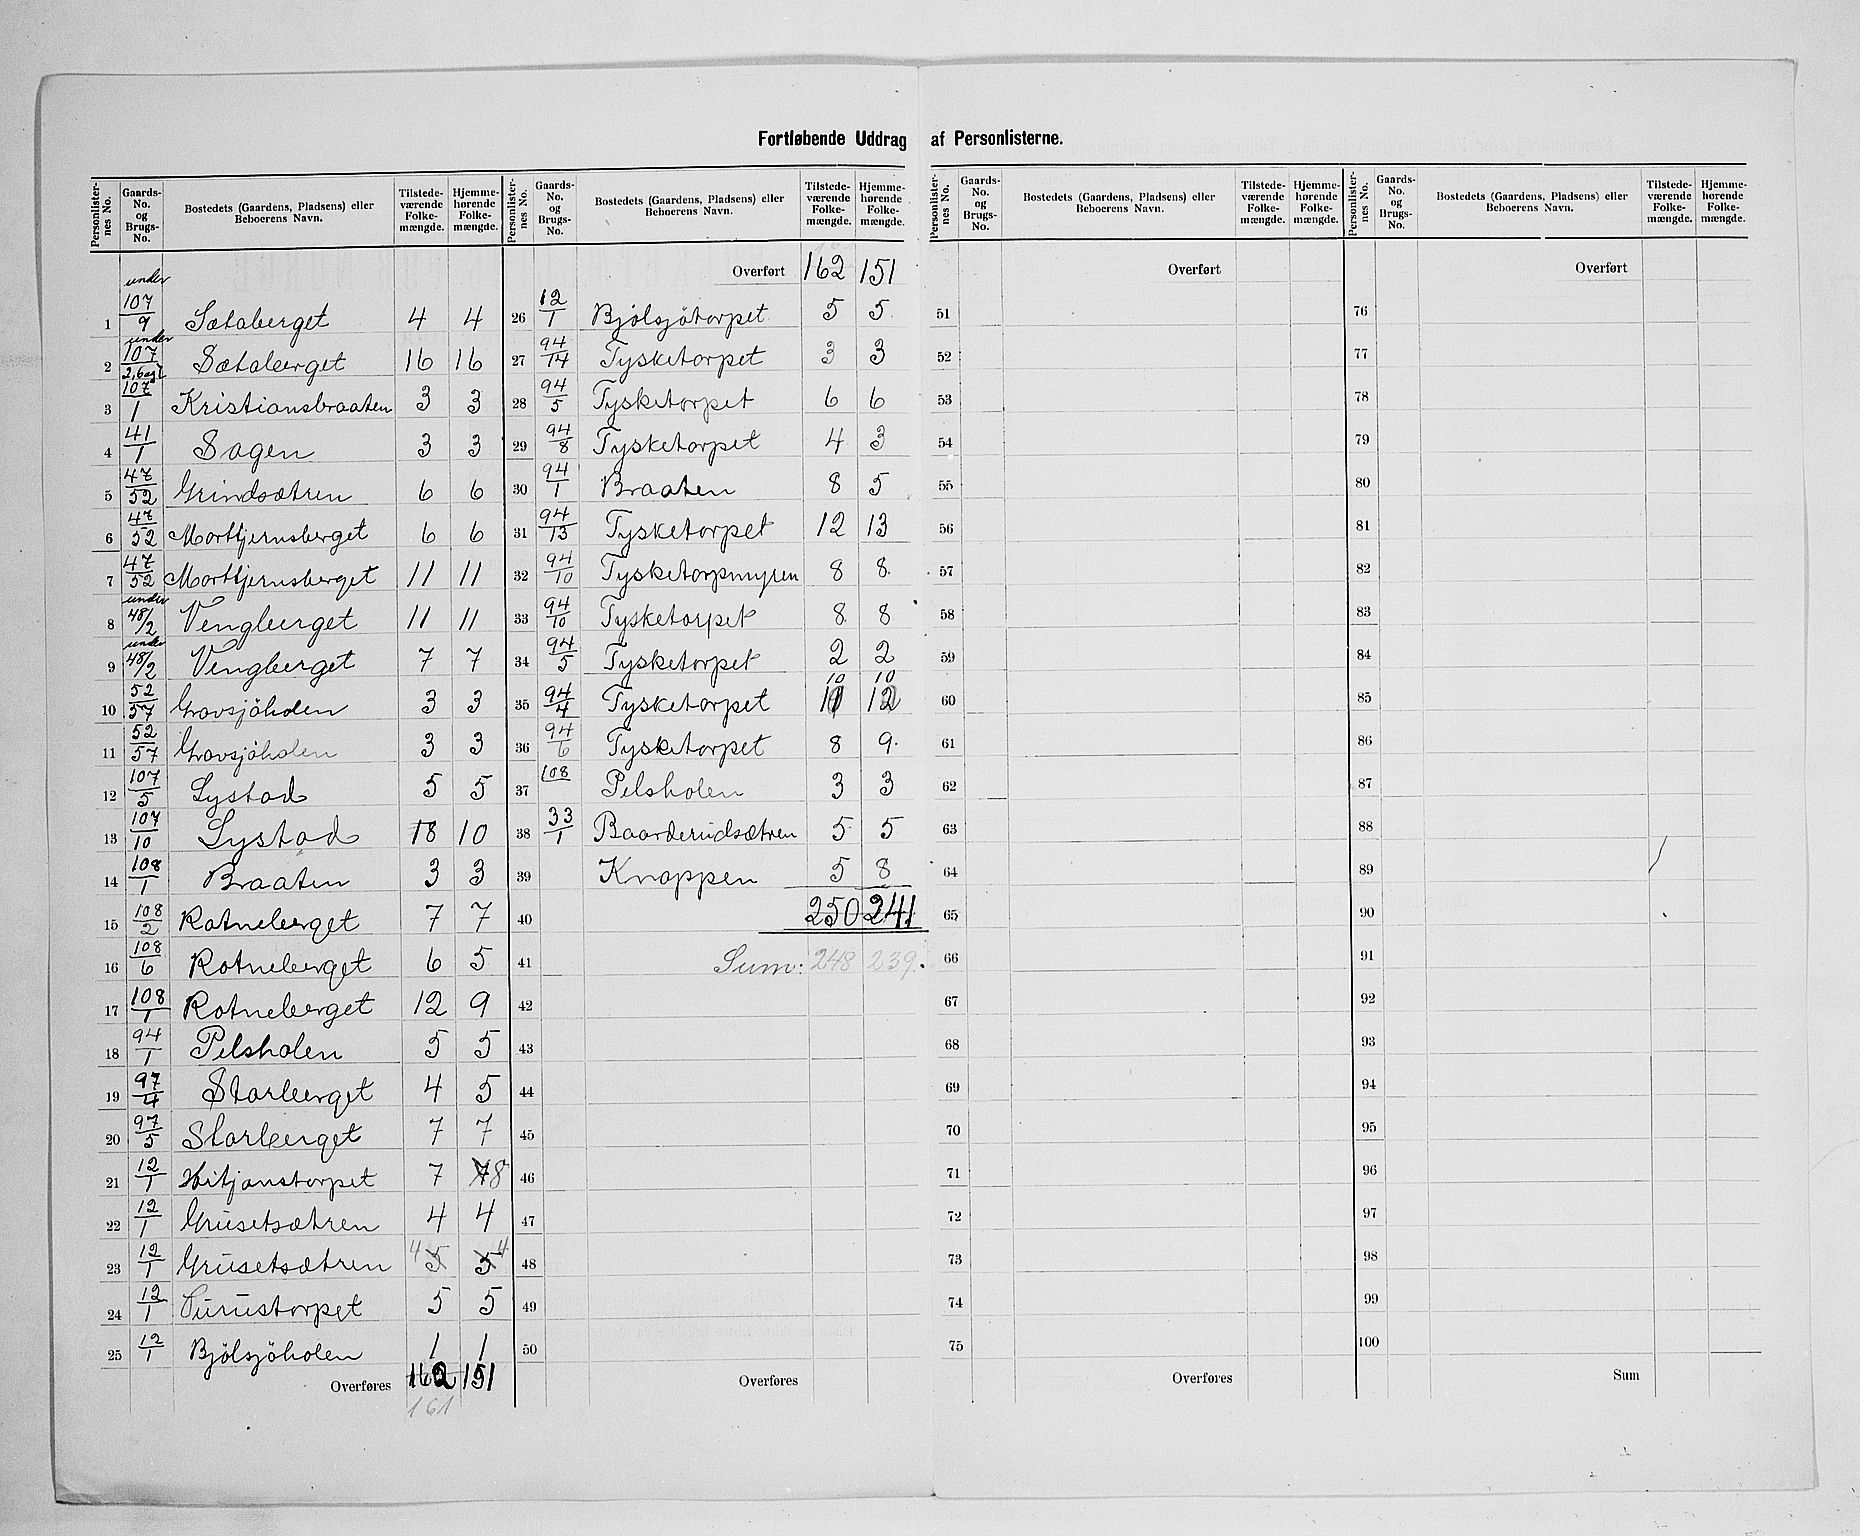 Fortløbende Uddrag af Personlisterne.
Personlister-nes No. Gaards-No. og Brugs-No. Bostedets (Gaardens, Pladsens) eller Beboerens Navn. Tilstede-værende Folke-mængde. Hjemme-hørende Folke-mængde.
1 under 107/9 Sætaberget 4 4
2 under 107/2,6 og 7 Sætaberget 16 16
3 107/1 Kristiansbraaten 3 3
4 41/1 Sagen 3 3
5 47/52 Grindsætren 6 6
6 47/52 Morttjernsberget 6 6
7 47/52 Morttjernsberget 11 11
8 under 48/2 Vengberget 11 11
9 under 48/2 Vengberget 7 7
10 52/57 Gravsjöholen 3 3
11 52/57 Gravsjöholen 3 3
12 107/5 Lystad 5 5
13 107/10 Lystad 18 10
14 108/1 Braaten 3 3
15 108/2 Rotneberget 7 7
16 108/6 Rotneberget 6 5
17 108/1 Rotneberget 12 9
18 94/1 Pelsholen 5 5
19 97/4 Storberget 4 5
20 97/5 Storberget 7 7
21 12/1 Hitjanstorpet 7 7 8
22 12/1 Grusetsætren 4 4
23 12/1 Grusetsætren 4 5 5 4
24 12/1 Purustorpet 5 5
25 12/1 Bjölsjöholen 1 1
Overføres 162 151
161
Personlister-nes No. Gaards-No. og Brugs-No. Bostedets (Gaardens, Pladsens) eller Beboerens Navn. Tilstede-værende Folke-mængde. Hjemme-hørende Folke-mængde.
Overført 162 151
26 12/1 Bjölsjötorpet 5 5
27 94/14 Tysketorpet 3 3
28 94/5 Tysketorpet 6 6
29 94/8 Tysketorpet 4 3
30 94/1 Braaten 8 5
31 94/13 Tysketorpet 12 13
32 94/10 Tysketorpmyren 8 8
33 94/10 Tysketorpet 8 8
34 94/5 Tysketorpet 2 2
10 10
35 94/4 Tysketorpet 11 12
36 94/6 Tysketorpet 8 9
37 108 Pelsholen 3 3
38 33/1 Baarderudsætren 5 5
39 Knappen 5 8
40 250 241
41 Sum: 248 239.
42
43
44
45
46
47
48
49
50
Overføres
Personlister-nes No. Gaards-No. og Brugs-No. Bostedets (Gaardens, Pladsens) eller Beboerens Navn. Tilstede-værende Folke-mængde. Hjemme-hørende Folke-mængde.
Overført
51
52
53
54
55
56
57
58
59
60
61
62
63
64
65
66
67
68
69
70
71
72
73
74
75
Overføres
Personlister-nes No. Gaards-No. og Brugs-No. Bostedets (Gaardens, Pladsens) eller Beboerens Navn. Tilstede-værende Folke-mængde. Hjemme-hørende Folke-mængde.
Overført
76
77
78
79
80
81
82
83
84
85
86
87
88
89
90
91
92
93
94
95
96
97
98
99
100
Sum